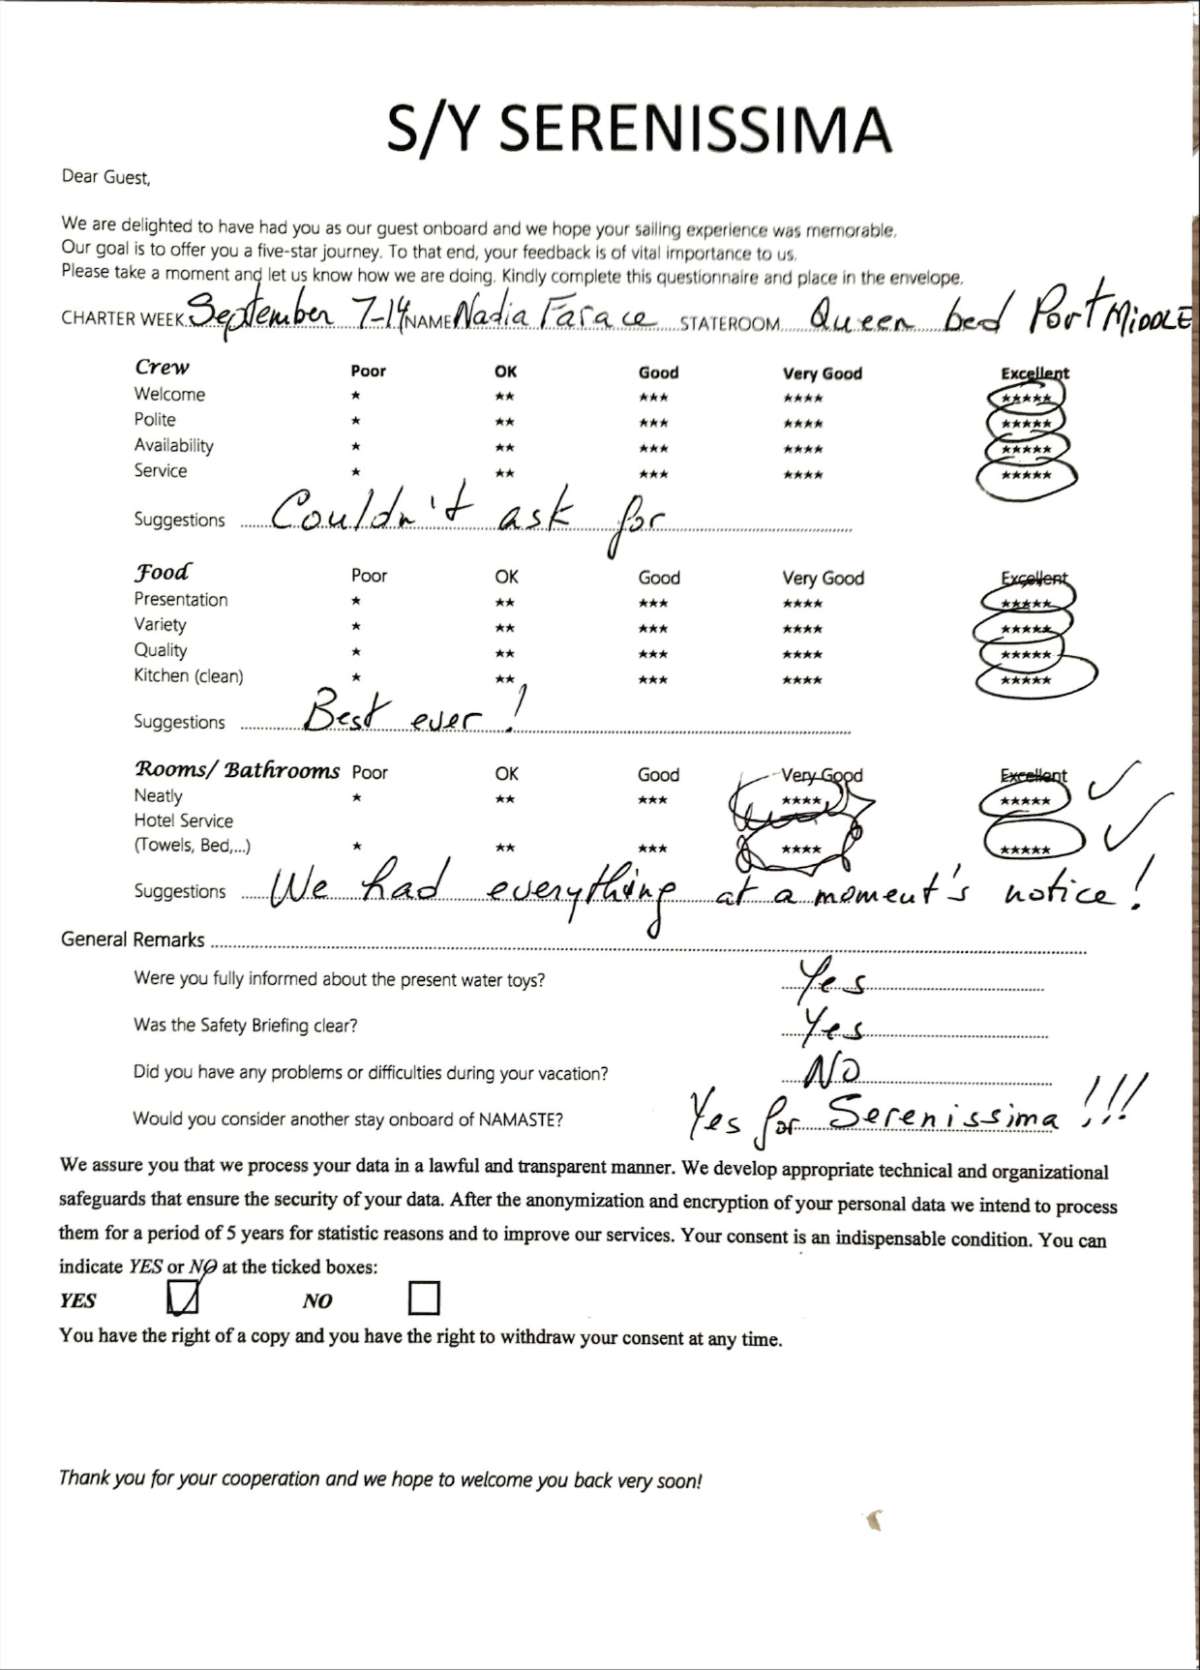 S/Y SERENISSIMA
Dear Guest,
We are delighted to have had you as our guest onboard and we hope your sailing experience was memorable.
Our goal is to offer you a five-star journey. To that end, your feedback is of vital importance to us.
Please take a moment and let us know how we are doing. Kindly complete this questionnaire and place in the envelope.
CHARTER WEEK September 7-14 NAME Nadia Farace STATEROOM Queen bed Port MIDDLE
Crew Poor OK Good Very Good Excellent
Welcome ★ ★★ ★★★ ★★★★ ★★★★★
Polite ★ ★★ ★★★ ★★★★ ★★★★★
Availability ★ ★★ ★★★ ★★★★ ★★★★★
Service ★ ★★ ★★★ ★★★★ ★★★★★
Suggestions Couldn't ask for
Food Poor OK Good Very Good Excellent
Presentation ★ ★★ ★★★ ★★★★ ★★★★★
Variety ★ ★★ ★★★ ★★★★ ★★★★★
Quality ★ ★★ ★★★ ★★★★ ★★★★★
Kitchen (clean) ★ ★★ ★★★ ★★★★ ★★★★★
Suggestions Best ever!
Rooms/ Bathrooms Poor OK Good Very Good Excellent
Neatly ★ ★★ ★★★ ★★★★ ★★★★★
Hotel Service
(Towels, Bed,...) ★ ★★ ★★★ ★★★★ ★★★★★
Suggestions We had everything at a moment's notice!
General Remarks
Were you fully informed about the present water toys? Yes
Was the Safety Briefing clear? Yes
Did you have any problems or difficulties during your vacation? NO
Would you consider another stay onboard of NAMASTE? Yes for Serenissima !!!
We assure you that we process your data in a lawful and transparent manner. We develop appropriate technical and organizational
safeguards that ensure the security of your data. After the anonymization and encryption of your personal data we intend to process
them for a period of 5 years for statistic reasons and to improve our services. Your consent is an indispensable condition. You can
indicate YES or NO at the ticked boxes:
YES NO
You have the right of a copy and you have the right to withdraw your consent at any time.
Thank you for your cooperation and we hope to welcome you back very soon!